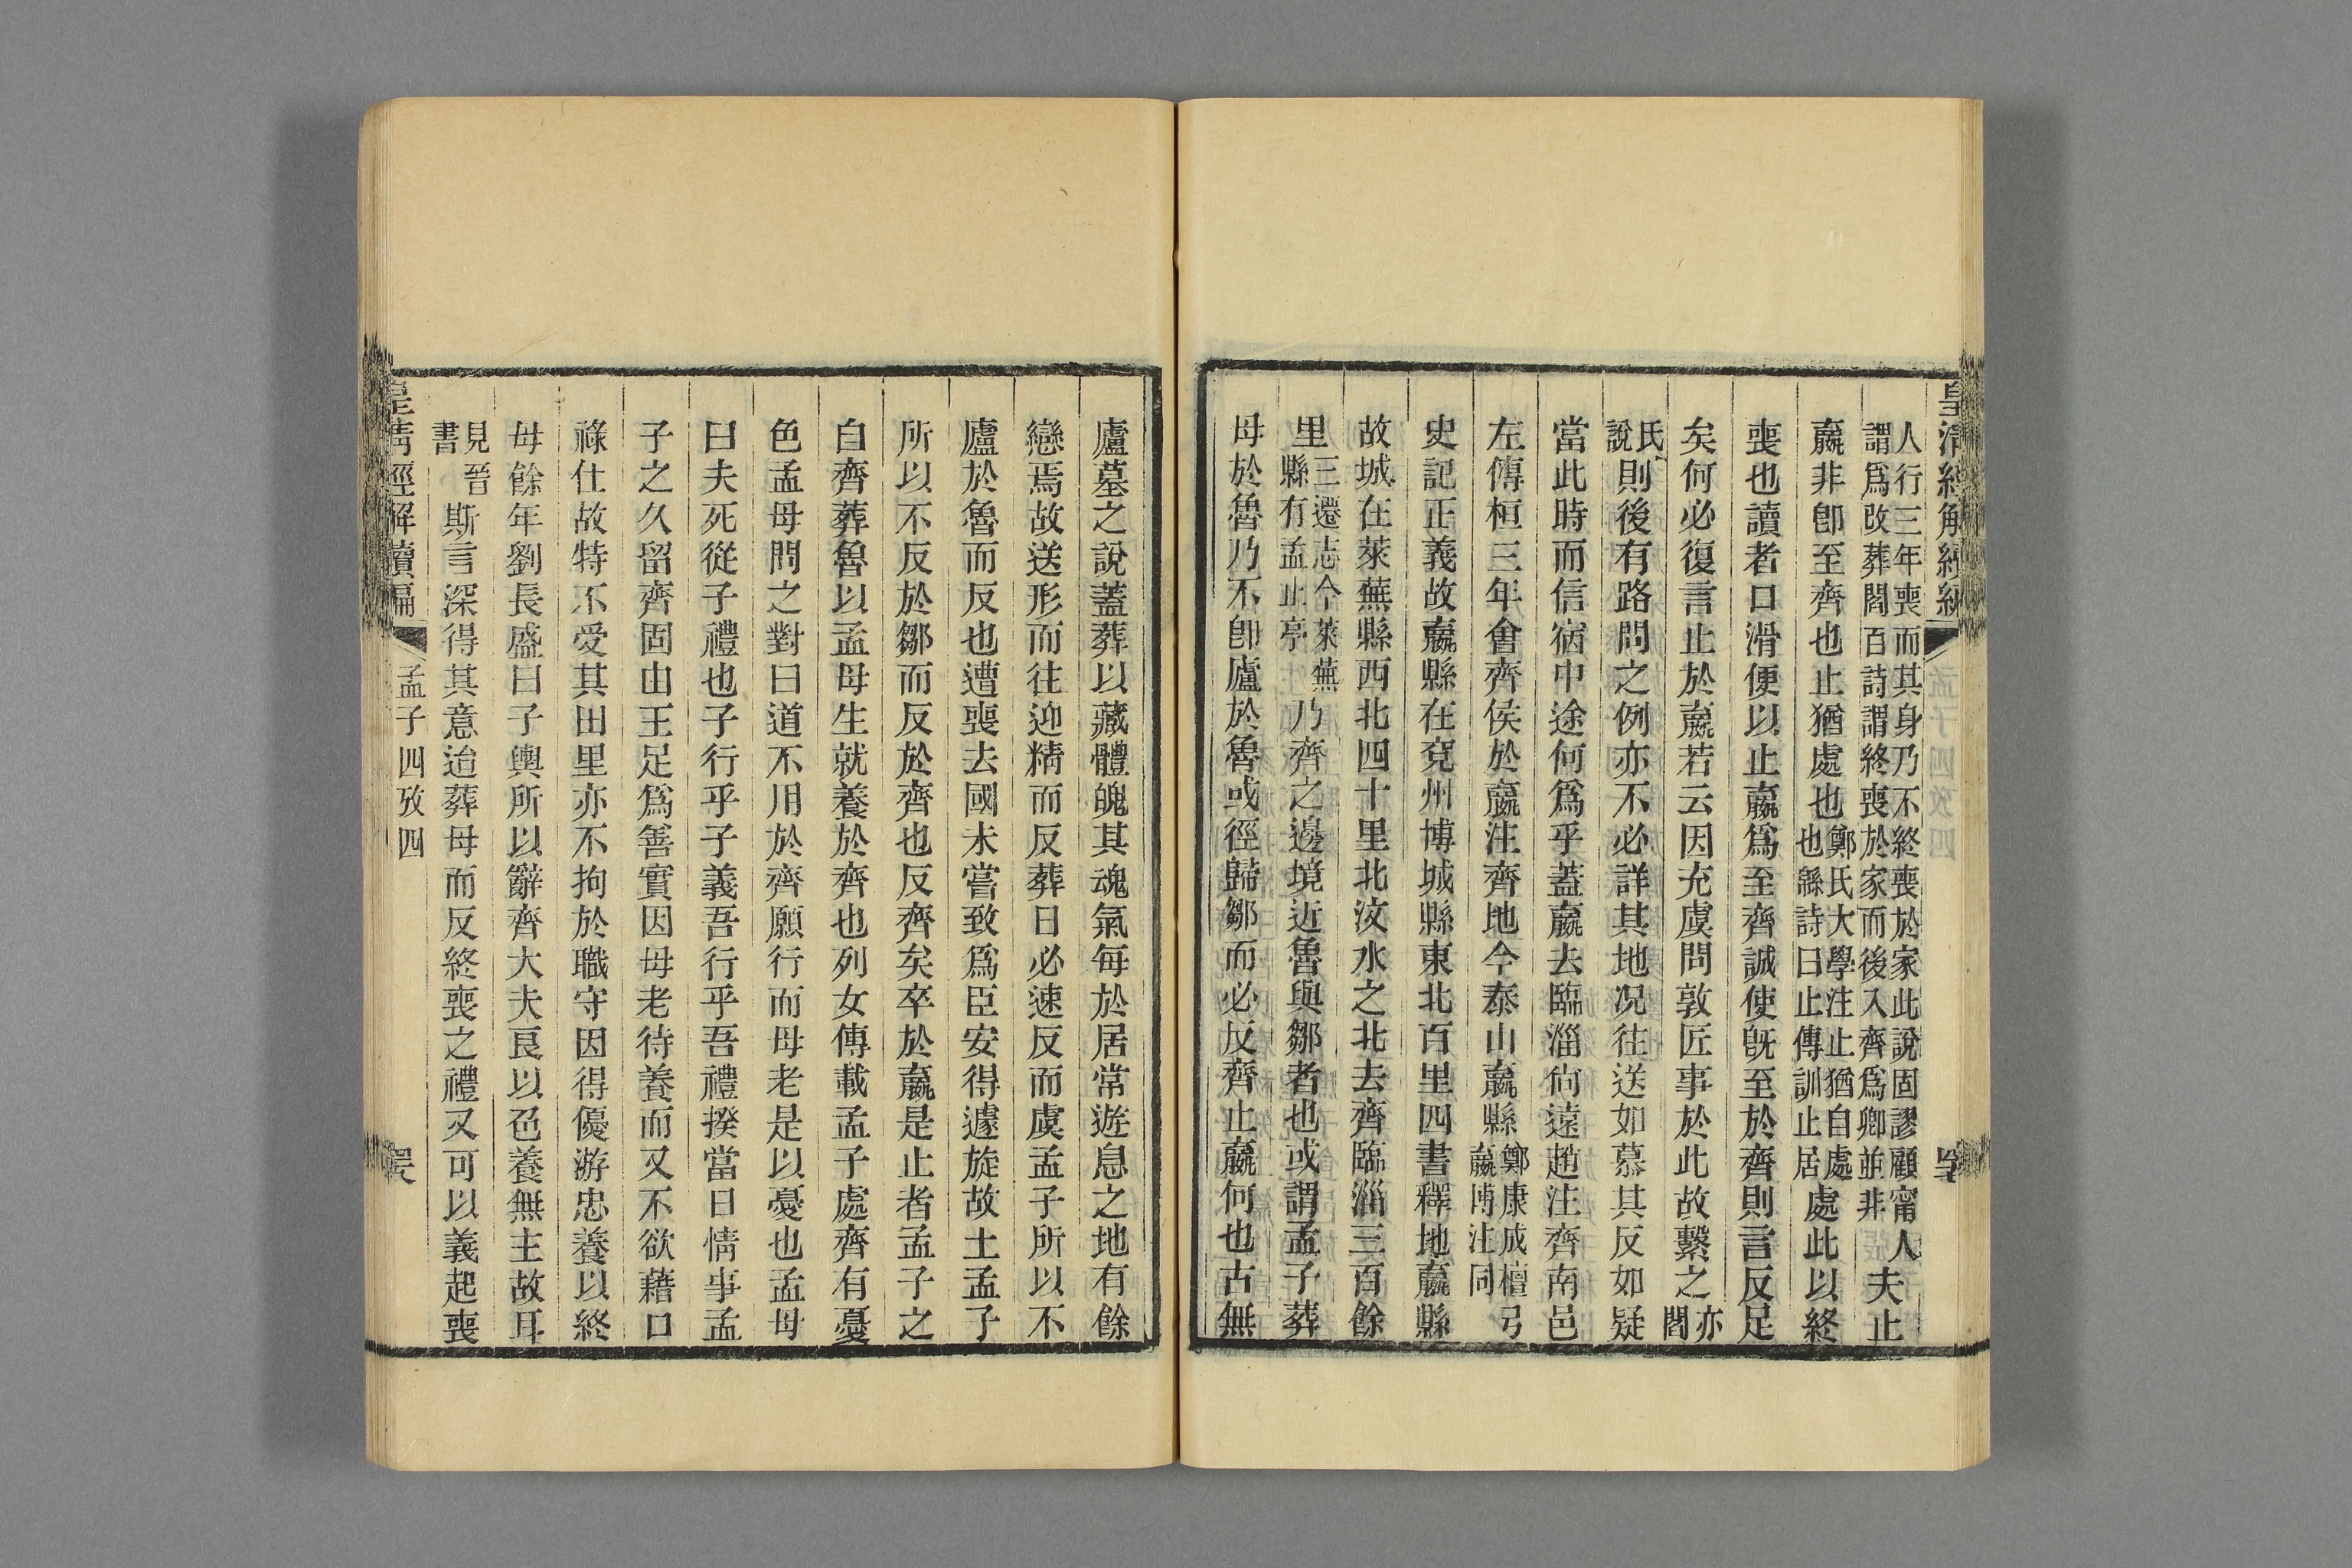 皇清經解續編
人行三年喪而其身乃不終喪於家此說固謬顧甯人
謂爲改葬閻百詩謂終喪於家而後入齊爲卿並非
夫止
嬴非卽至齊也止猶處也
鄭氏大學注止猶自處
也緜詩曰止傳訓止居
處此以終
喪也讀者口滑便以止嬴爲至齊誠使旣至於齊則言反足
矣何必復言止於嬴若云因充虞問敦匠事於此故繫之
亦
閻
氏
說
則後有路問之例亦不必詳其地况往送如慕其反如疑
當此時而信宿中途何爲乎蓋嬴去臨淄尙遠趙注齊南邑
左傳桓三年會齊侯於嬴注齊地今泰山嬴縣
鄭康成檀弓
嬴博注同
史記正義故嬴縣在兗州博城縣東北百里四書釋地嬴縣
故城在萊蕪縣西北四十里北汶水之北去齊臨淄三百餘
里
三遷志今萊蕪
縣有孟止亭
乃齊之邊境近魯與鄒者也或謂孟子葬
母於魯乃不卽廬於魯或徑歸鄒而必反齊止嬴何也古無
廬墓之說蓋葬以藏體魄其魂氣每於居常遊息之地有餘
戀焉故送形而往迎精而反葬日必速反而虞孟子所以不
廬於魯而反也遭喪去國未嘗致爲臣安得遽旋故土孟子
所以不反於鄒而反於齊也反齊矣卒於嬴是止者孟子之
自齊葬魯以孟母生就養於齊也列女傳載孟子處齊有憂
色孟母問之對曰道不用於齊願行而母老是以憂也孟母
曰夫死從子禮也子行乎子義吾行乎吾禮揆當日情事孟
子之久留齊固由王足爲善實因母老待養而又不欲藉口
祿仕故特不受其田里亦不拘於職守因得優游忠養以終
母餘年劉長盛曰子輿所以辭齊大夫良以色養無主故耳
見晉
書
斯言深得其意迨葬母而反終喪之禮又可以義起喪
皇清經解續編
孟子四攷四